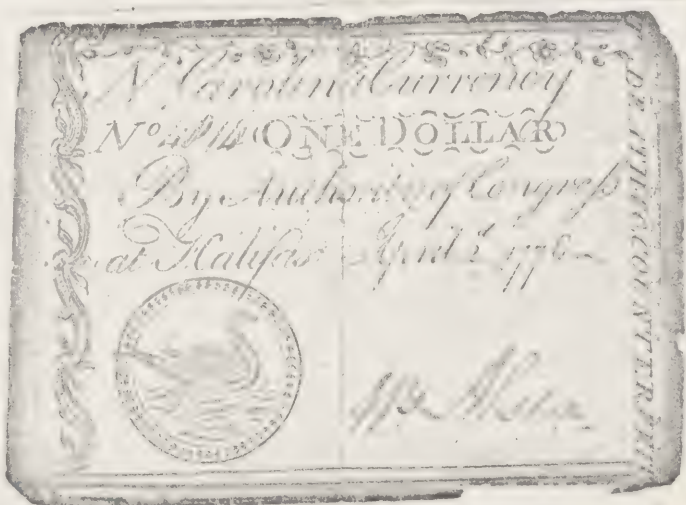 N. Carolina Currency
No ONE DOLLAR
By Authority of Congress
at Halifax April 2. 1776
DEATH TO COUNTERFEIT